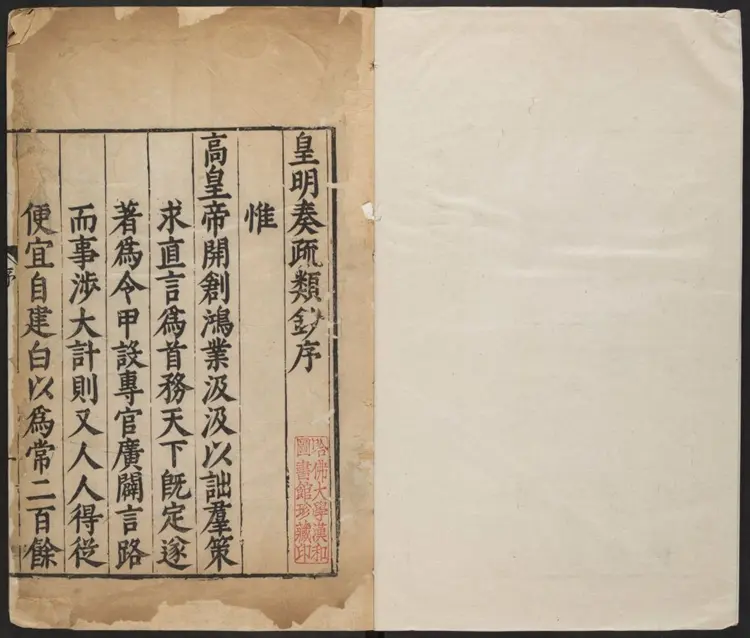 皇明奏疏類鈔序
惟
高皇帝開創鴻業汲汲以詘羣策
求直言爲首務天下旣定遂
著爲令甲設專官廣闢言路
而事涉大計則又人人得從
便宜自建白以爲常二百餘
序
哈佛大學漢和
圖書館珍藏印